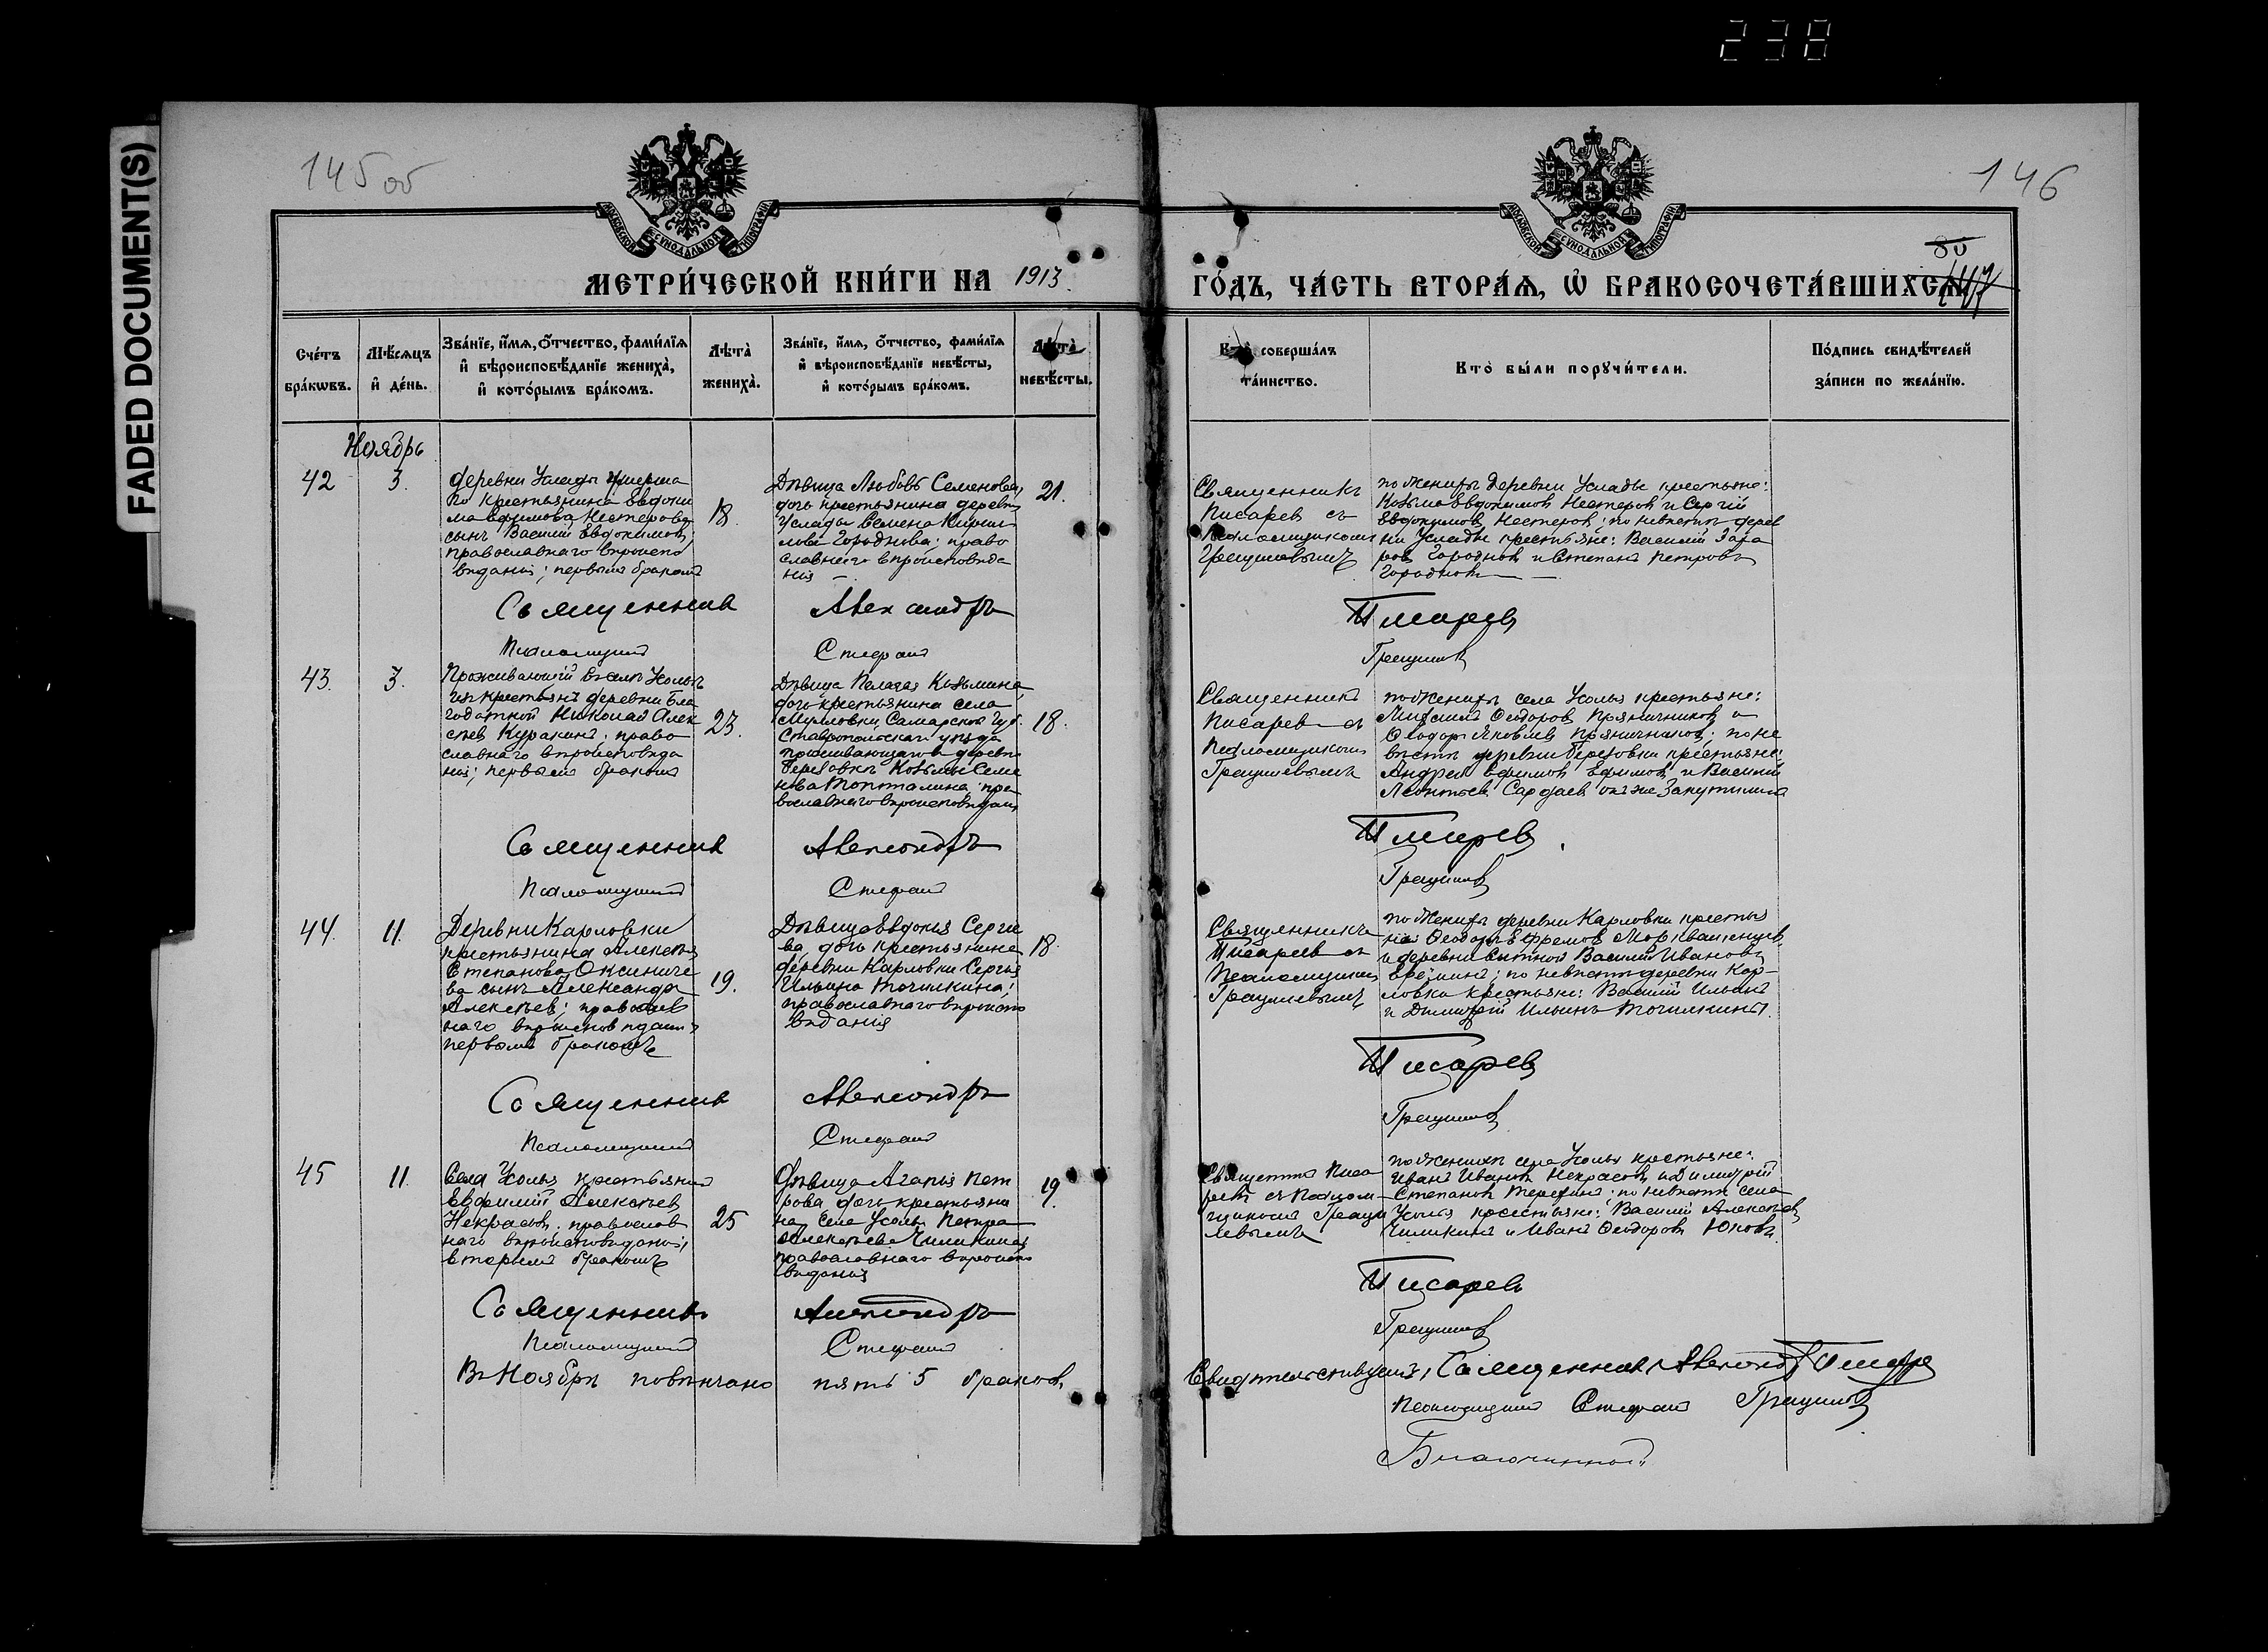 238
FADED DOCUMENT(S)
145 об
146
МОСКОВСКОЙ СѴНОДАЛЬНОЙ ТИПОГРАФІИ
МОСКОВСКОЙ СѴНОДАЛЬНОЙ ТИПОГРАФІИ
80
147
МЕТРИ́ЧЕСКОЙ КНИ́ГИ НА 1913.
ГО́ДЪ, ЧА́СТЬ ВТОРА́Ѧ, Ѡ҆ БРАКОСОЧЕТА́ВШИХСѦ.
Сче́тъ
бра́кѡвъ.
Мѣ́сѧцъ
и҆ де́нь.
Зва́нїе, и҆́мѧ, ѻ҆́тчество, фами́лїѧ
и҆ вѣроисповѣ́данїе жениха̀,
и҆ кото́рымъ бра́комъ.
Лѣ́та̀
жениха̀.
Зва́нїе, и҆́мѧ, ѻ҆́тчество, фами́лїѧ
и҆ вѣроисповѣ́данїе невѣ́сты,
и҆ кото́рымъ бра́комъ.
Лѣ́та̀
невѣ́сты.
Кто̀ соверша́лъ
та́инство.
Кто̀ бы́ли порꙋчи́тели.
По́дпись свидѣ́телей
за́писи по жела́нїю.
Ноябрь
42
3.
деревни Услады
крестьянина Евдоки
ма Ефимова Нестерова
сынъ Василій Евдокимовъ,
православнаго вѣроиспо
вѣданія; первымъ бракомъ
18.
Дѣвица Любовь Семенова,
дочь крестьянина деревни
Услады Семена Кирил
лова Городнова; право
славнаго вѣроисповѣда
нія
21.
Священникъ
Писаревъ съ
Псаломщикомъ
Грацилевымъ
по женихѣ деревни Услады крестьяне:
Козьма Евдокимовъ Нестеровъ и Сергій
Евдокимовъ Нестеровъ; по невѣстѣ дерев
ни Услады крестьяне: Василій Заха
ровъ Городновъ и Степанъ Петровъ
Городновъ
Священникъ Александръ Писаревъ
Псаломщикъ Стефанъ Грацилевъ
43.
3.
Проживающій въ селѣ Усольѣ
изъ крестьянъ деревни Бла
годатной Николай Алек
сѣевъ Куракинъ; право
славнаго вѣроисповѣда
нія; первымъ бракомъ
23.
Дѣвица Пелагея Козьмина,
дочь крестьянина села
Самарской губ.
Ставропольскаго уѣзда
проживающаго въ деревнѣ
Березовкѣ Козьмы Семе
нова Топталина; пра
вославнаго вѣроисповѣданія
18.
Священникъ
Писаревъ съ
Псаломщикомъ
Грацилевымъ
по женихѣ села Усолья крестьяне:
Михаилъ Ѳеодоровъ Пряничниковъ и
Ѳеодоръ Яковлевъ Пряничниковъ; по не
вѣстѣ деревни Березовки крестьяне:
Андрей Ефимовъ Ефимовъ и Василій
Леонтьевъ Сардаевъ онъ же
Священникъ Александръ Писаревъ
Псаломщикъ Стефанъ Грацилевъ
44.
11.
Деревни Карловки
крестьянина Алексѣя
Степанова Оксиниче
ва сынъ Александръ
Алексѣевъ; православ
наго вѣроисповѣданія
первымъ бракомъ
19.
Дѣвица Евдокія Сергіе
ва, дочь крестьянина
деревни Карловки Сергія
Ильина Точилкина;
православнаго вѣроиспо
вѣданія
18
Священникъ
Писаревъ съ
Псаломщикомъ
Грацилевымъ
по женихѣ деревни Карловки крестья
не: Ѳеодоръ Ефремовъ Морквашенцевъ
и деревни Василій Ивановъ
Ерёминъ; по невѣстѣ деревни Кар-
ловки крестьяне: Василій Ильинъ
и Димитрій Ильинъ Точилкины.
Священникъ Александръ Писаревъ
Псаломщикъ Стефанъ Грацилевъ
45
11.
Села Усолья крестьянинъ
Евфимій Алексѣевъ
Некрасовъ; православ
наго вѣроисповѣданія;
вторымъ бракомъ
25
Дѣвица Агапія Пет
рова дочь крестьяни
на села Усолья Петра
Алексѣева Чиликина;
православнаго вѣроиспо
вѣданія
19.
Священникъ Писа
ревъ съ Псалом-
щикомъ Граци
левымъ
по женихѣ села Усолья крестьяне:
Иванъ Ивановъ Некрасовъ и Димитрій
Степановъ Терехинъ; по невѣстѣ села
Усолья крестьяне: Василій Алексѣевъ
Чиликинъ и Иванъ Ѳеодоровъ Юковъ.
Священникъ Александръ Писаревъ
Псаломщикъ Стефанъ Грацилевъ
Въ Ноябрѣ повѣнчано пять 5 браковъ,
Свидѣтельствуемъ, Священникъ Александръ Писаревъ
Псаломщикъ Стефанъ Грацилевъ
Благочинный